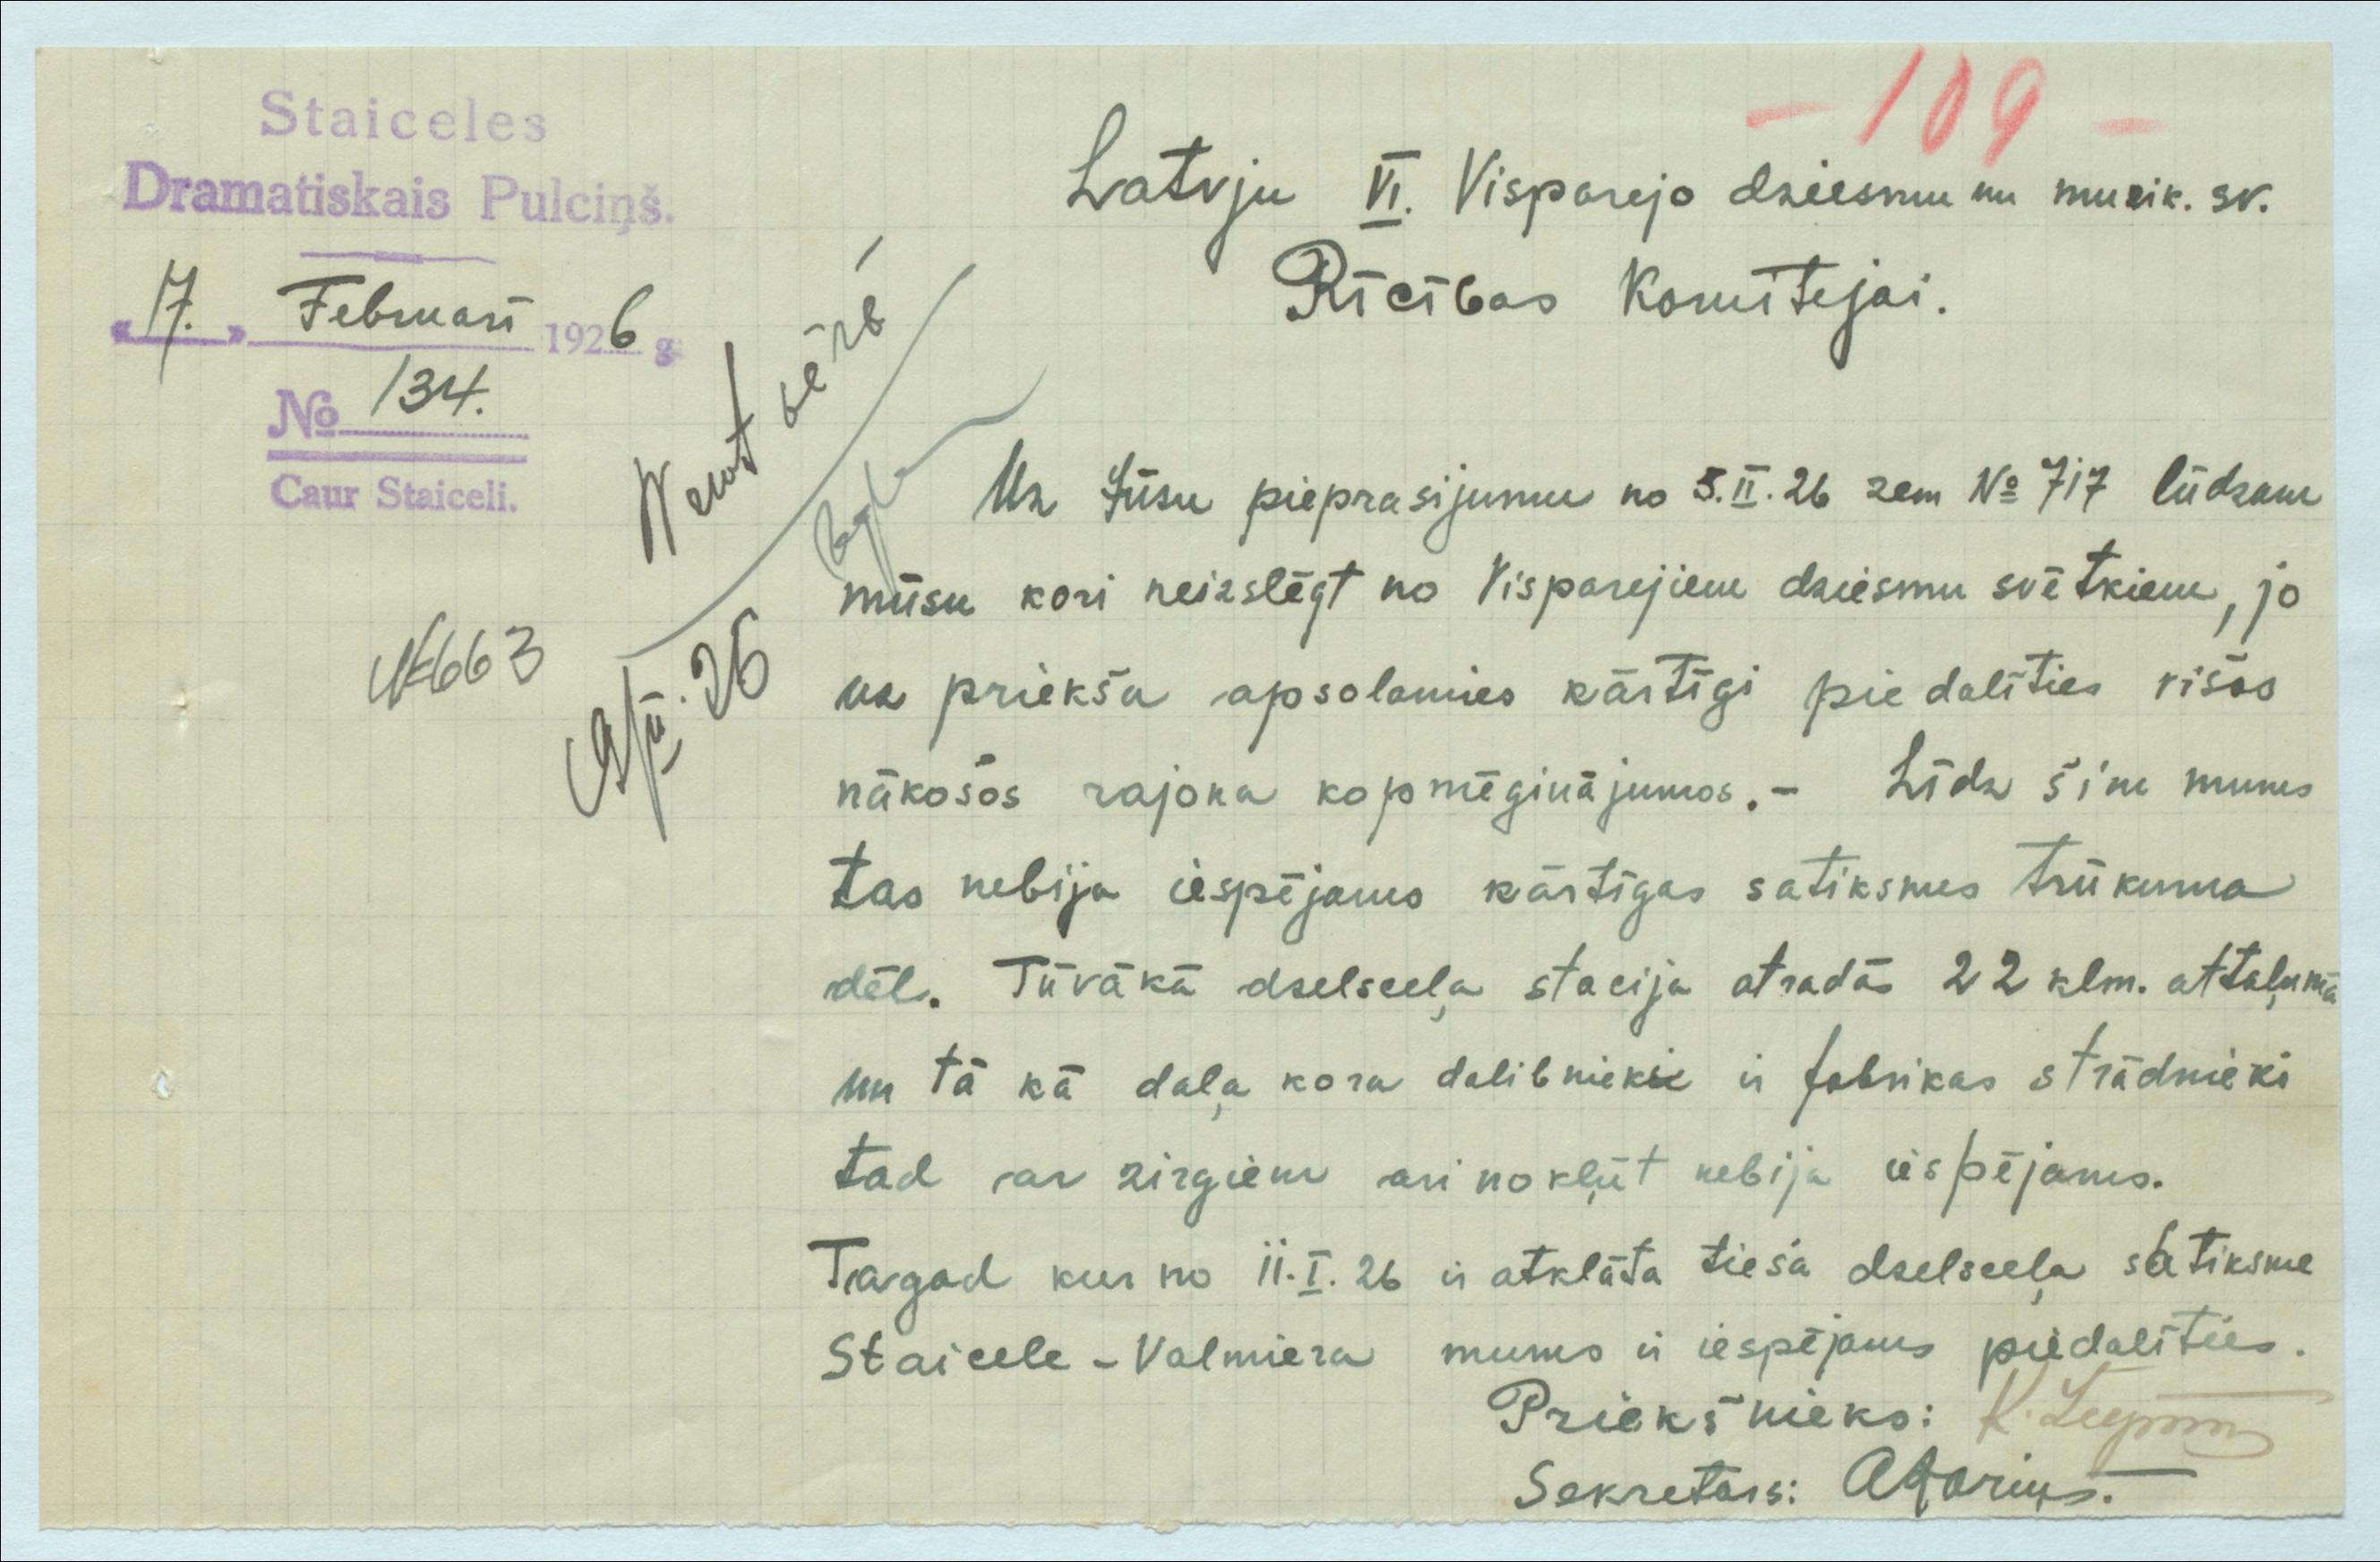 - 109 -
Staiceles
Dramatiskais Pulciņš.
"7." Februarī 1926 g.
No 134.
Caur Staiceli.
Latvju VI. Visparejo dziesmu un muzik. sv.
Rīcības Komitejai.
Ņemt vērā
II. 26
№663
Uz Jūsu pieprasijumu no 5.II.26 zem № 717 lūdzam
mūsu kori neizslēgt no Visparejiem dziesmu svētkiem, jo
uz priekšu apsolamies kārtīgi piedalīties visos
nākošos rajona kopmēginājumos.- Līdz šim mums
tas nebija iespējams kārtīgas satiksmes trūkuma
dēļ. Tūvākā dzelsceļa stacija atradās 22 klm. attaļumā
un tā kā daļa kora dalibnieki ir fabrikas strādnieki
tad ar zirgiem ari nokļūt nebija iespējams.
Tagad kur no 11.I.26 ir atklāta tieša dzelsceļa satiksme
Staicele-Valmiera mums ir iespējams piedalīties.
Priekšnieks: K.
Sekretars: